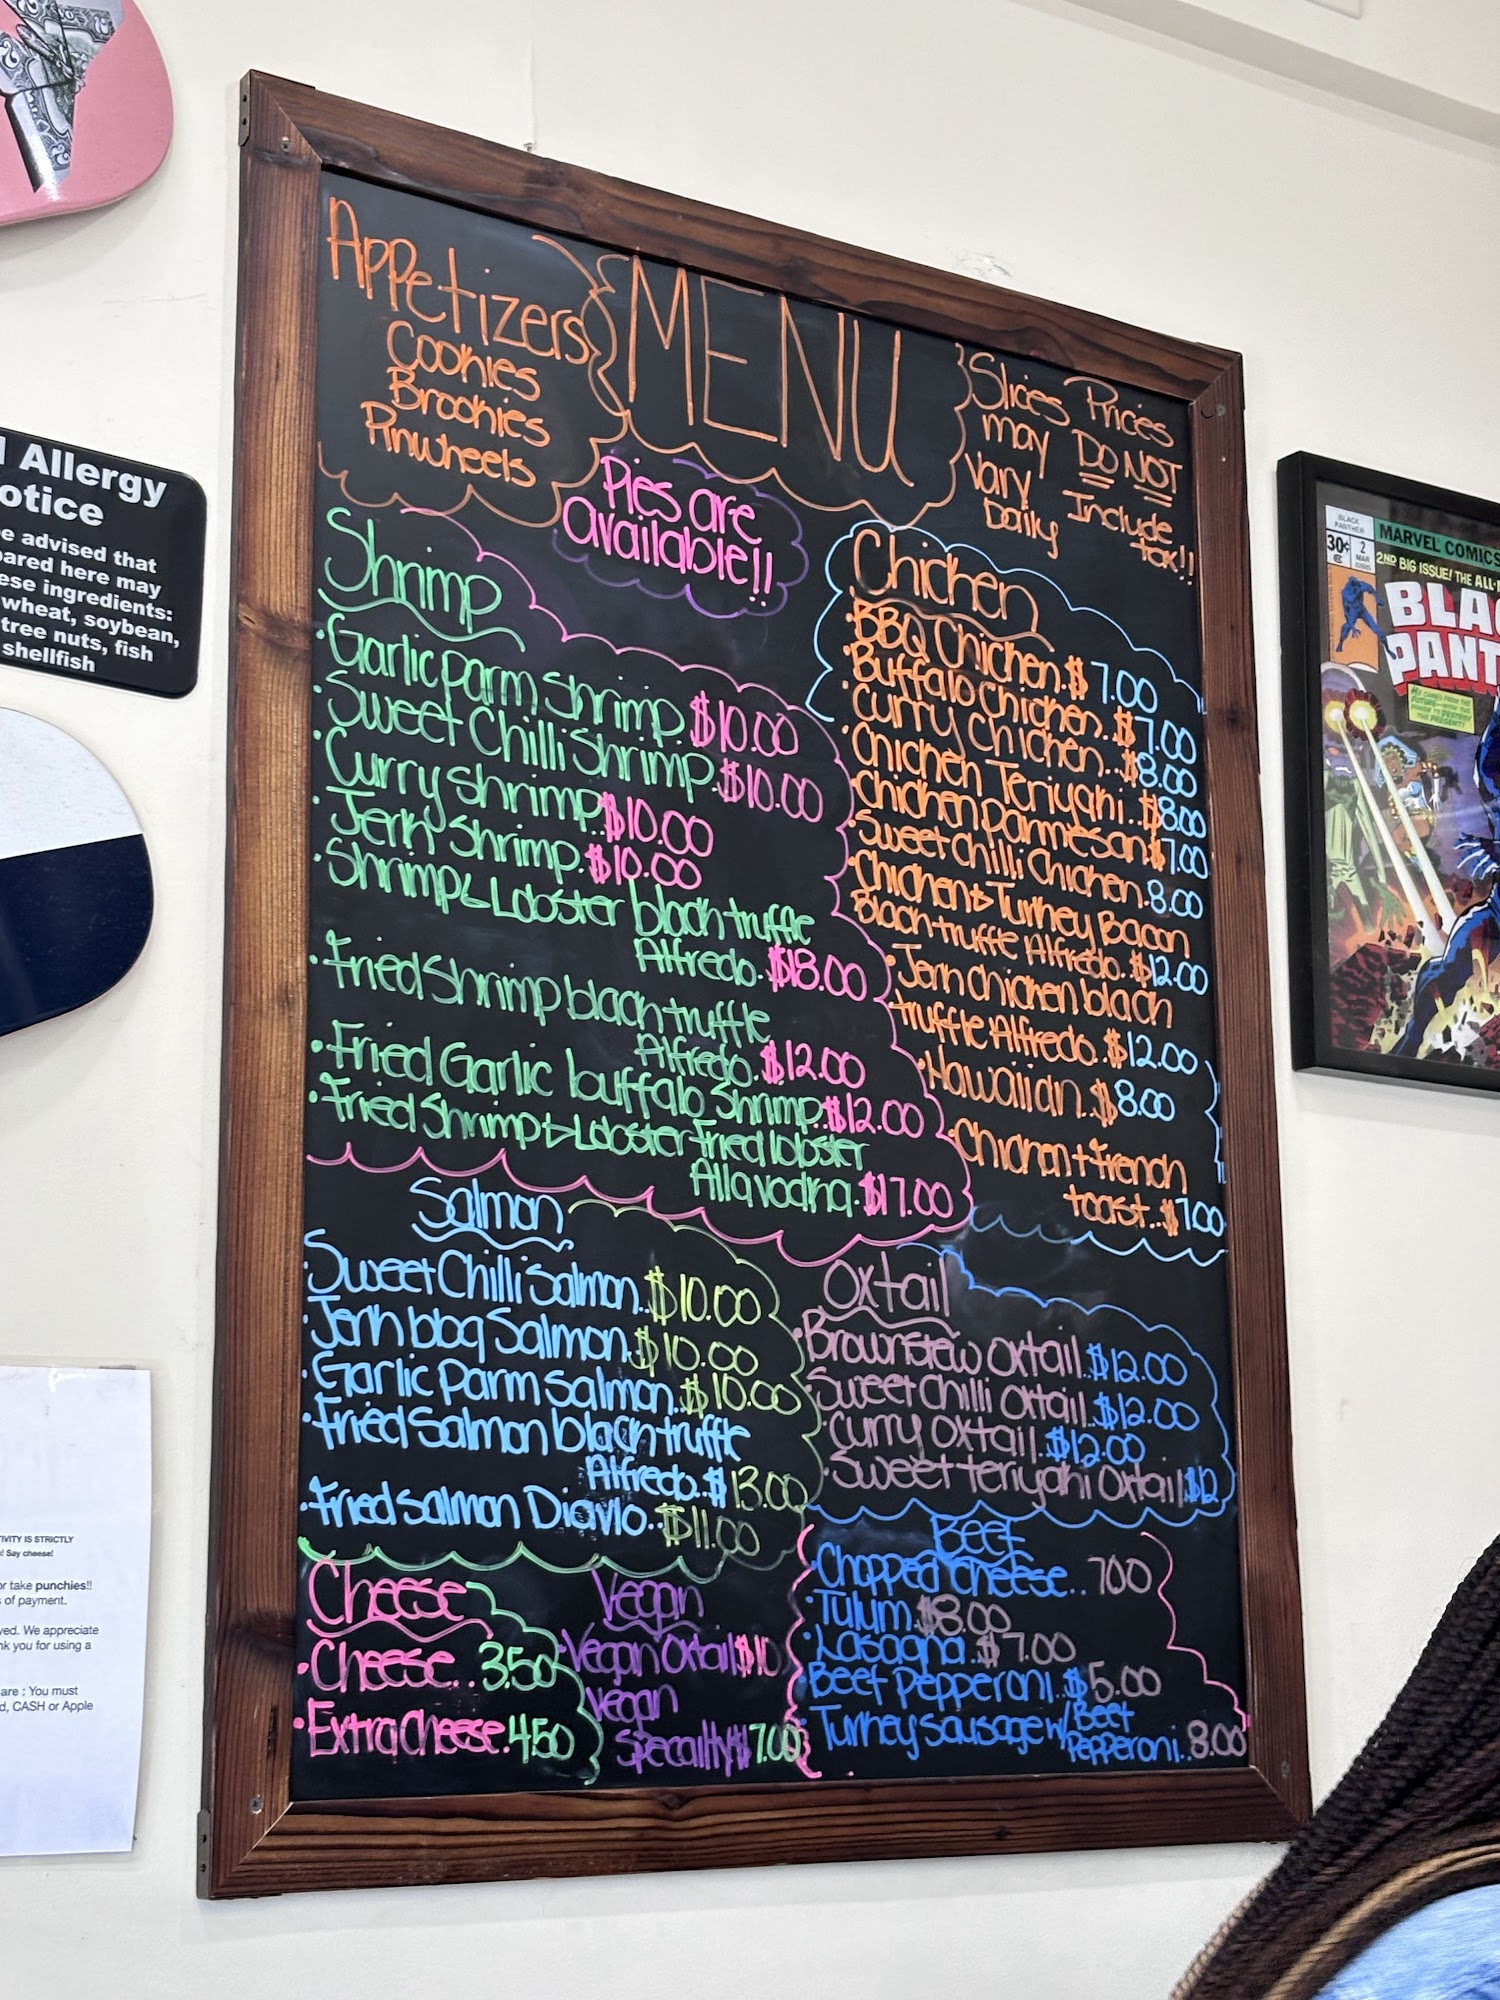 Appetizers
Cookies
Brookies
Pinwheels
MENU
Slices
may
vary
Daily
Prices
DO NOT
Include
tax!!
Pies are
available!!
Shrimp
• Garlic parm shrimp. $10.00
• Sweet Chilli Shrimp. $10.00
• Curry shrimp.. $10.00
• Jerk Shrimp. $10.00
• Shrimp & Lobster black truffle
Alfredo. $18.00
• Fried Shrimp black truffle
Alfredo. $12.00
• Fried Garlic buffalo Shrimp. $12.00
• Fried Shrimp & Lobster Fried lobster
Alla vodka. $17.00
Chicken
• BBQ Chicken. $7.00
• Buffalo Chicken. $7.00
• Curry Chicken.. $8.00
• Chicken Teriyaki.. $8.00
• Chicken parmesan. $7.00
• Sweet Chilli Chicken. 8.00
• Chicken & Turkey Bacon
Black truffle Alfredo. $12.00
• Jerk chicken black
truffle Alfredo.. $12.00
• Hawaiian.. $8.00
• Chicken + french
toast.. $7.00
Salmon
• Sweet Chilli Salmon.. $10.00
• Jerk bbq Salmon. $10.00
• Garlic Parm Salmon.. $10.00
• Fried Salmon black truffle
Alfredo. $13.00
• Fried salmon Diavlo.. $11.00
Oxtail
• Brownstew oxtail.. $12.00
• Sweet Chilli Oxtail.. $12.00
• Curry oxtail. $12.00
• Sweet teriyaki oxtail $12
Cheese
• Cheese.. 3.50
• Extra Cheese. 4.50
Vegan
• Vegan Oxtail $10
• Vegan
Specailty $7.00
Beef
• Chopped cheese.. 7.00
• Tulum. $8.00
• Lasagna. $7.00
• Beef Pepperoni.. $5.00
• Turkey sausage w/ Beef
Pepperoni.. 8.00
Allergy
otice
e advised that
pared here may
ese ingredients:
wheat, soybean,
tree nuts, fish
shellfish
TIVITY IS STRICTLY
! Say cheese!
or take punchies!!
s of payment.
ved. We appreciate
nk you for using a
are ; You must
d, CASH or Apple
BLACK
PANTHER
30¢
2
MAR
MARVEL COMICS
2ND BIG ISSUE! THE ALL-
BLA
PANT